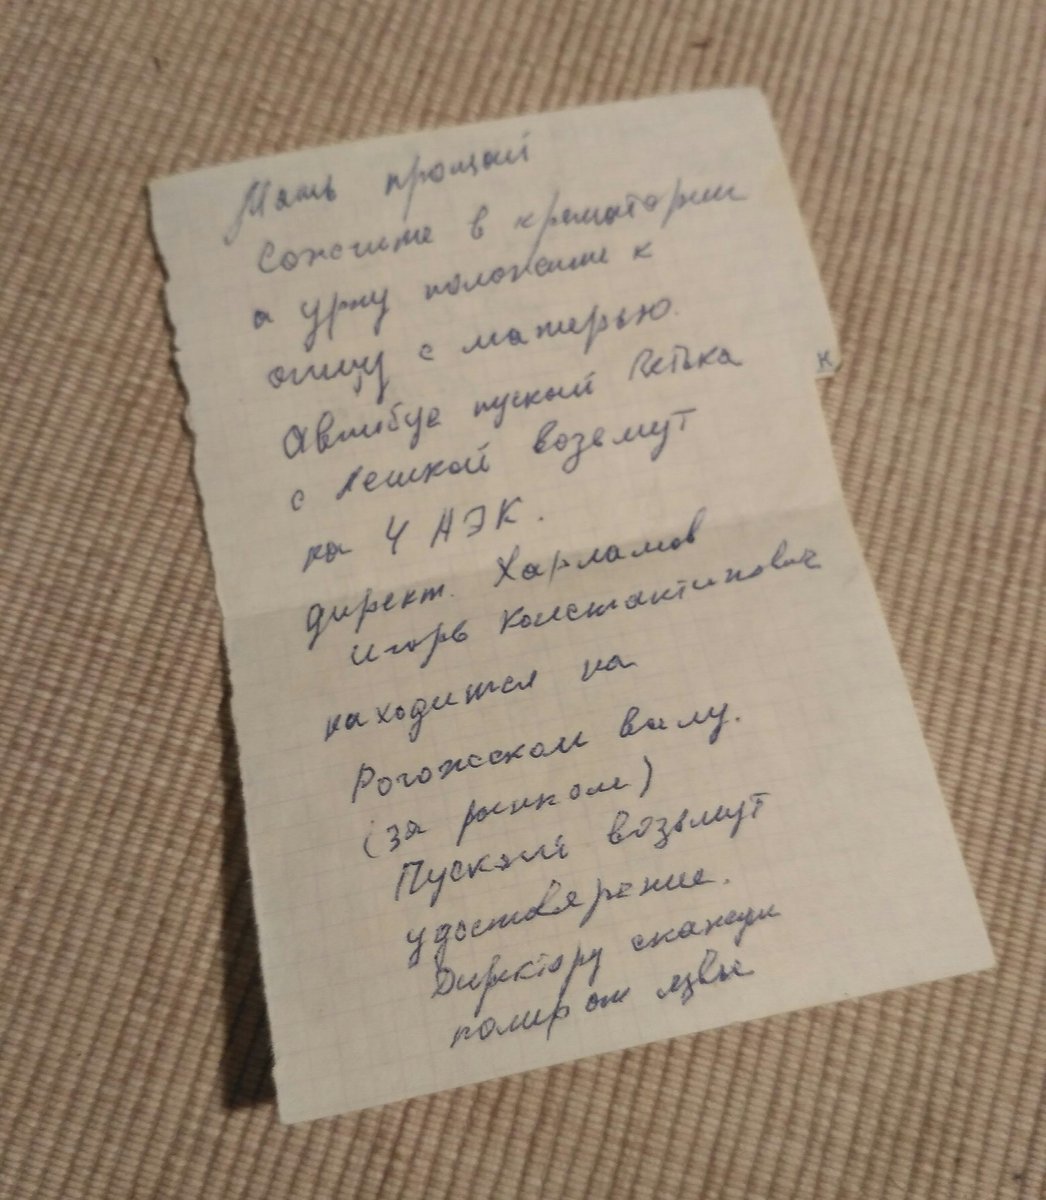 Мать прощай
Сожгите в крематории
а урну положите к
отцу с матерью.
Автобус пускай Петька
с Лешкой возьмут
на 4 АЭК.
директ. Харламов
Игорь Константинович
находится на
Рогожском валу.
(за рынком)
Пускай возьмут
удостоверение.
Директору скажут
помер от язвы
к